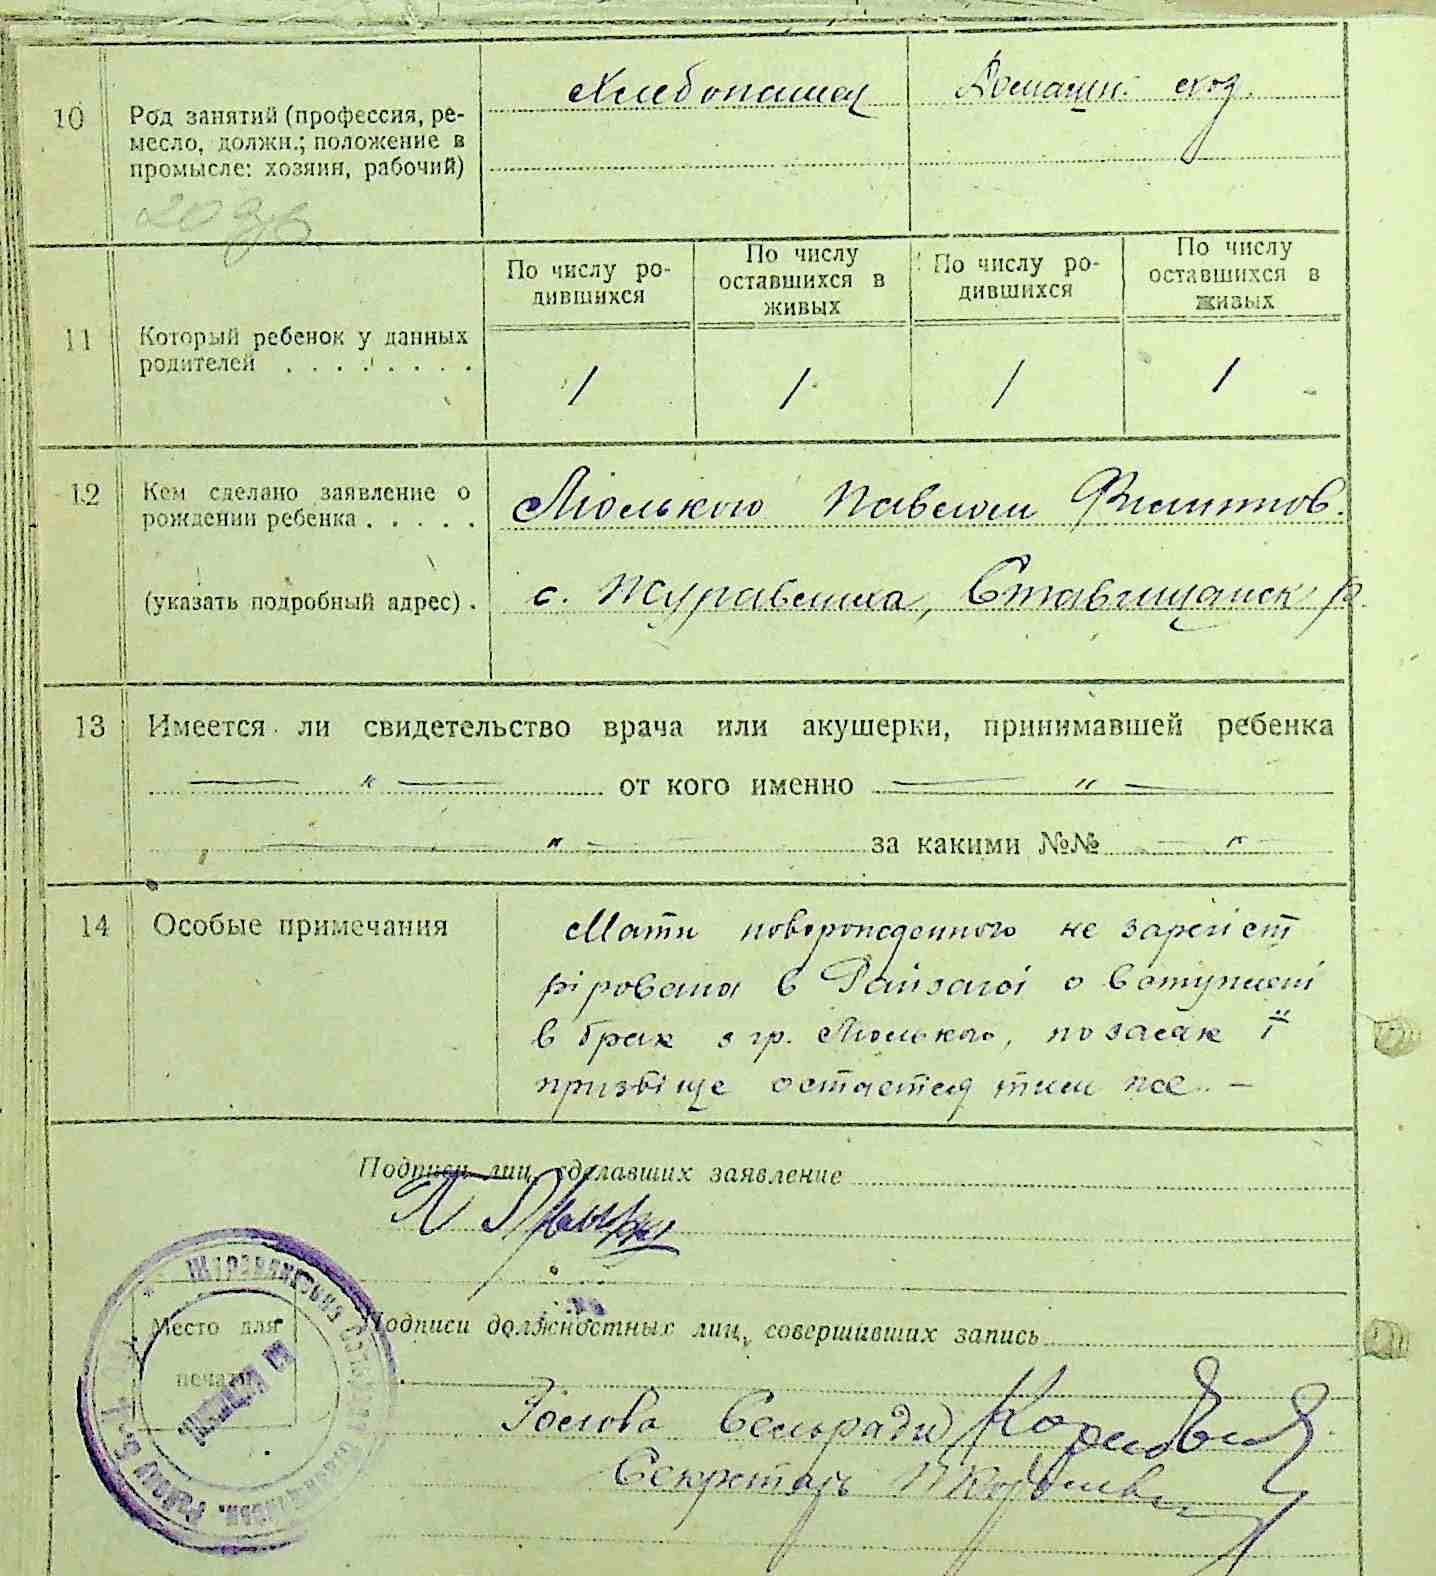 10
Род занятий (профессия, ре-
месло, должн.; положение в
промысле: хозяин, рабочий)
Хлебопашец
Домашн.
11
Который ребенок у данных
родителей . . . . . . . .
По числу ро-
дившихся
По числу
оставшихся в
живых
По числу ро-
дившихся
По числу
оставшихся в
живых
1 1 1 1
12
Кем сделано заявление о
рождении ребенка . . . . .
(указать подробный адрес) .
Люлькою Павлом Филиппов.
с. Журавлиха, Ставищанск р.
13
Имеется ли свидетельство врача или акушерки, принимавшей ребенка
— " — от кого именно — " —
— " — за какими №№ — " —
14
Особые примечания
Мати новорожденного не зарегіст
рірована в Райзагсі о вступлені
в брак з гр. Люлькою, по
призвіще остается тим же. —
Подписи лиц, сделавших заявление
Место для
печати
Подписи должностных лиц, совершивших запись
Голова Сельради
Секретарь